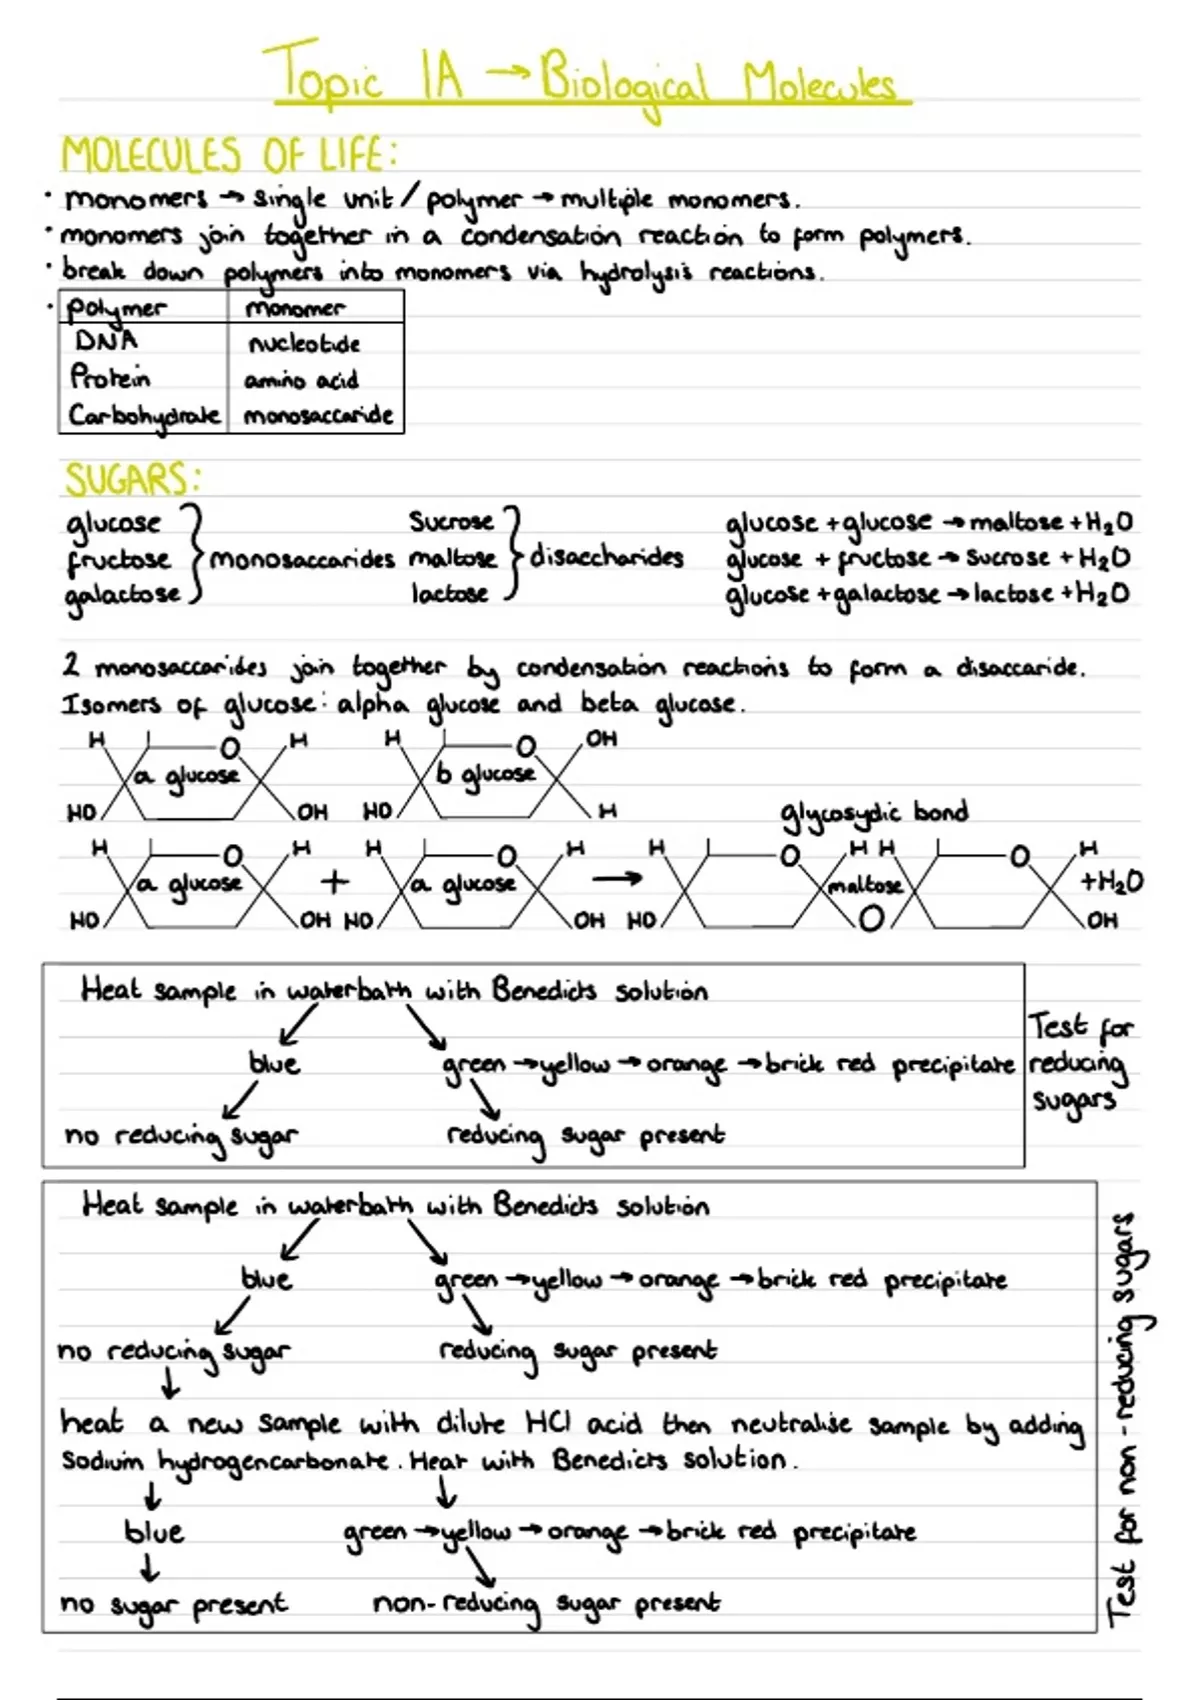 Topic 1A → Biological Molecules
MOLECULES OF LIFE:
· monomers → single unit / polymer → multiple monomers.
· monomers join together in a condensation reaction to form polymers.
· break down polymers into monomers via hydrolysis reactions.
· Polymer monomer
DNA nucleotide
Protein amino acid
Carbohydrate monosaccaride
SUGARS:
glucose Sucrose glucose + glucose → maltose + H₂O
fructose monosaccarides maltose disaccharides glucose + fructose → Sucrose + H₂O
galactose lactose glucose + galactose → lactose + H₂O
2 monosaccarides join together by condensation reactions to form a disaccaride.
Isomers of glucose: alpha glucose and beta glucose.
H O H H O OH
a glucose b glucose
HO OH HO H glycosydic bond
H O H H O H H O H H O H
a glucose + a glucose → maltose +H₂O
HO OH HO OH HO O OH
Heat sample in waterbath with Benedicts solution
blue green → yellow → orange → brick red precipitate
no reducing sugar reducing sugar present
Test for
reducing
sugars
Heat sample in waterbath with Benedicts solution
blue green → yellow → orange → brick red precipitate
no reducing sugar reducing sugar present
heat a new sample with dilute HCl acid then neutralise sample by adding
Sodium hydrogencarbonate. Heat with Benedicts solution.
blue green → yellow → orange → brick red precipitate
no sugar present non-reducing sugar present
Test for non-reducing sugars